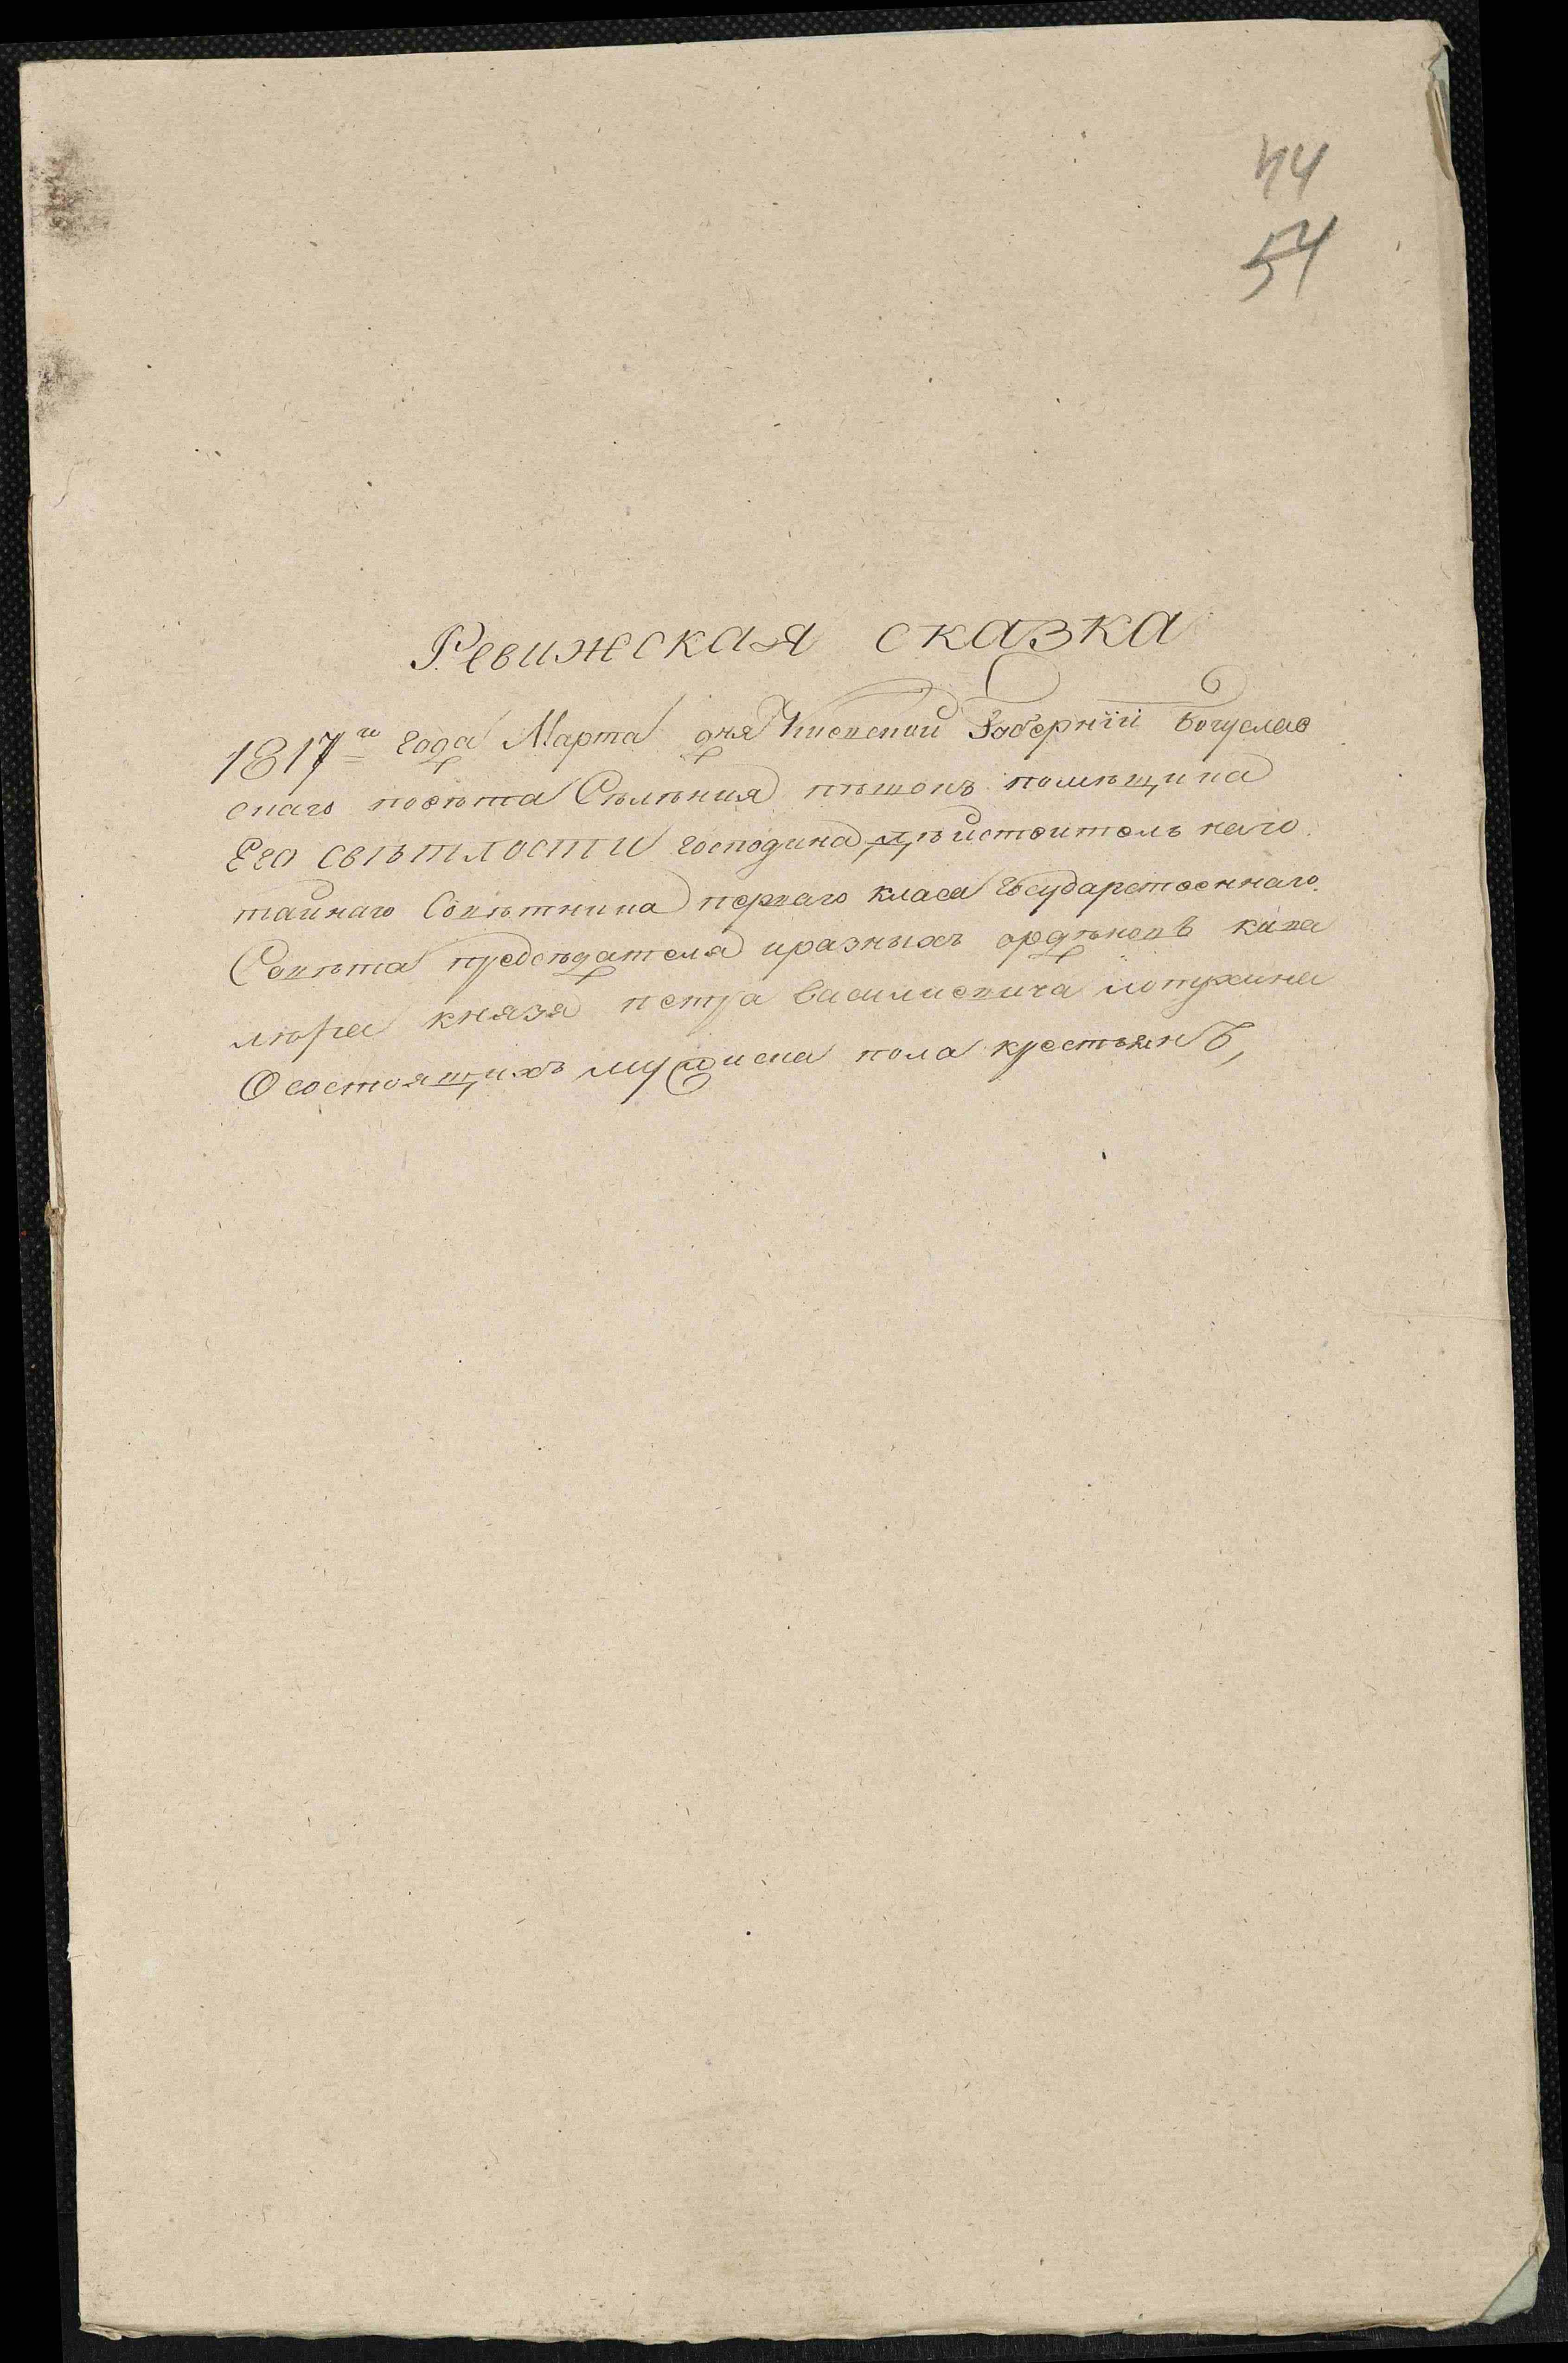 44
54
Ревижская сказка
1817го года Марта дня Киевской Губернїи Богуслав
скаго повѣта Сѣлѣния пѣшокъ помѣщика
Его свѣтлости господина дѣйствительнаго
тайнаго Совѣтника перваго класа Государственнаго
Совѣта предсѣдателя иразныхъ ордѣновъ кава
лѣра князя петра василиевича лопухина
Осостоящихъ мужиска пола крестьянъ,